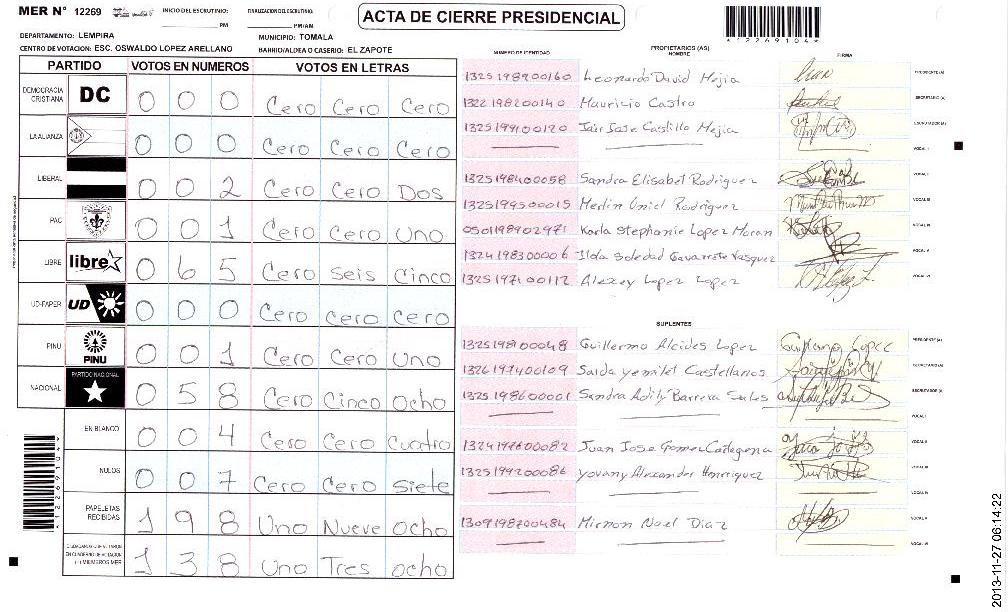 MER N° 12269 INICIO DEL ESCRUTINIO: PM FINALIZACION DEL ESCRUTINIO: PM/AM
ACTA DE CIERRE PRESIDENCIAL
*12269104*
DEPARTAMENTO: LEMPIRA MUNICIPIO: TOMALA
CENTRO DE VOTACION: ESC. OSWALDO LOPEZ ARELLANO BARRIO/ALDEA O CASERIO: EL ZAPOTE
PARTIDO VOTOS EN NUMEROS VOTOS EN LETRAS
DEMOCRACIA CRISTIANA DC 0 0 0 Cero Cero Cero
LA ALIANZA 0 0 0 Cero Cero Cero
LIBERAL 0 0 2 Cero Cero Dos
PAC 0 0 1 Cero Cero Uno
LIBRE libre 0 6 5 Cero Seis Cinco
UD-FAPER UD 0 0 0 Cero Cero Cero
PINU PINU 0 0 1 Cero Cero Uno
NACIONAL PARTIDO NACIONAL 0 5 8 Cero Cinco Ocho
EN BLANCO 0 0 4 Cero Cero Cuatro
NULOS 0 0 7 Cero Cero Siete
PAPELETAS RECIBIDAS 1 9 8 Uno Nueve Ocho
1 3 8 Uno Tres Ocho
*12269104*
NUMERO DE IDENTIDAD PROPIETARIOS (AS) NOMBRE FIRMA
1325198900160 Leonardo David Mejia PRESIDENTE (A)
1322198200140 Mauricio Castro SECRETARIO (A)
1325199100120 Jair Jose Castillo Mejia ESCRUTADOR (A)
VOCAL I
1325198400058 Sandra Elisabet Rodriguez VOCAL II
1325199500015 Merlin Uniel Rodriguez VOCAL III
0501198902971 Karla Stephanie Lopez Moran VOCAL IV
1324198300006 Ilda Soledad Navarrete Vasquez VOCAL V
1325197100112 Alexey Lopez Lopez VOCAL VI
SUPLENTES
1325198100048 Guillermo Alcides Lopez PRESIDENTE (A)
1326197400109 Saida Yemilet Castellanos SECRETARIO (A)
1325198600001 Sandra ESCRUTADOR (A)
VOCAL I
1324197600082 Juan Jose Gomez Cartagena VOCAL II
1325199200086 Yovany Alexander Henriquez VOCAL III
VOCAL IV
1309198700484 Mirnon Noel Diaz VOCAL V
VOCAL VI
2013-11-27 06:14:22